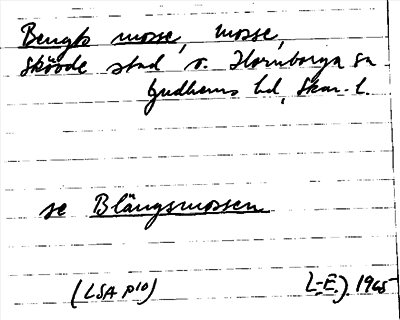 Bengts mosse, mosse,
Skövde stad o. Hornborga sn
Gudhems hd, Skar. l.
se Blängsmossen
(LSA p10)
L.-E.J. 1965